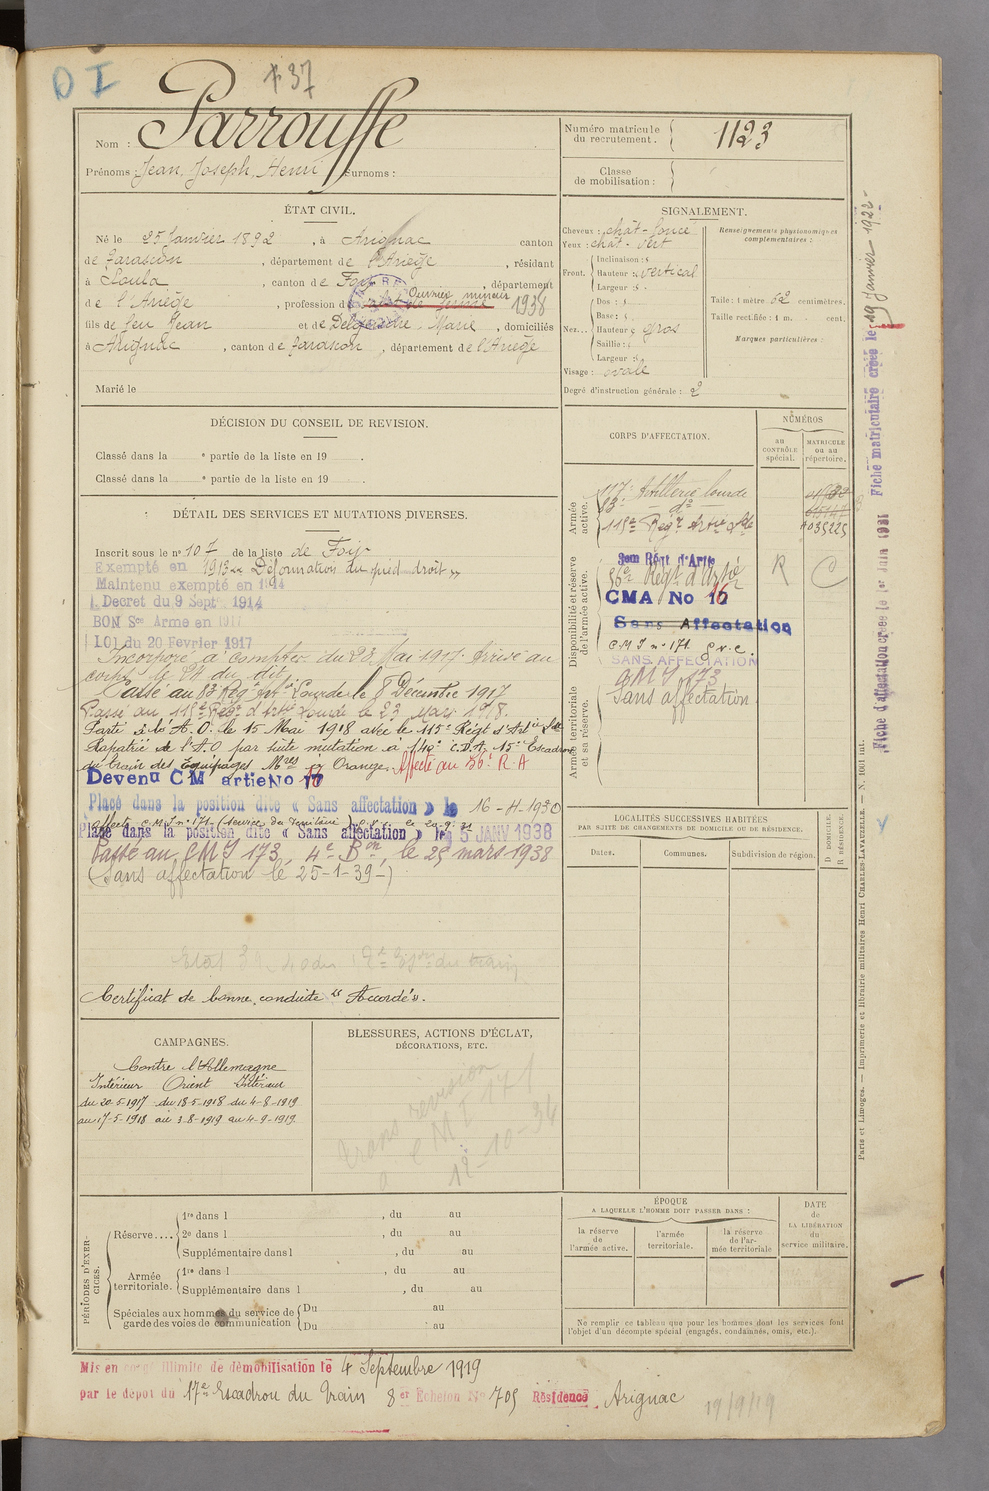 D I
*37
Nom : Parrouffe
Prénoms : Jean, Joseph, Henri Surnoms :
Numéro matricule du recrutement. 1123
Classe de mobilisation :
ÉTAT CIVIL.
Né le 25 Janvier 1892, à Arignac canton
de Tarascon, département de l'Ariège, résidant
à Soula, canton de Foix, département
de l'Ariège, profession de Ouvrier mineur 1938
fils de feu Jean et de Marie, domiciliés
à Arignac, canton de Tarascon, département de l'Ariège
Marié le
SIGNALEMENT.
Cheveux : chât-foncé
Yeux : chât-vert
Front. Inclinaison :
Hauteur : vertical
Largeur :
Nez... Dos :
Base :
Hauteur : gros
Saillie :
Largeur :
Visage : ovale
Degré d'instruction générale : 2
Renseignements physionomiques complémentaires :
Taille : 1 mètre 62 centimètres.
Taille rectifiée : 1 m. cent.
Marques particulières :
DÉCISION DU CONSEIL DE REVISION.
Classé dans la e partie de la liste en 19 .
Classé dans la e partie de la liste en 19 .
DÉTAIL DES SERVICES ET MUTATIONS DIVERSES.
Inscrit sous le no 107 de la liste de Foix
Exempté en 1913 « Déformation du pied droit »
Maintenu exempté en 1914
Decret du 9 Sept 1914
BON Sce Armé en 1917
LOI du 20 Fevrier 1917
Incorporé à compter du 23 Mai 1917. Arrivé au
corps le 24 du dit
Passé au 83e Rég. Artie Lourde le 8 Décembre 1917
Passé au 115e Régt d'Artie Lourde le 23 mars 1918.
Parti à l'A.O. le 15 Mai 1918 avec le 115e Régt d'Artie Lde
Rapatrié de l'A.O. par suite mutation à 15e Escadron
du train des Equipages Mres à Orange. Affecté au 56e R.A
Devenu C M artie No 17 16
Placé dans la position dite « Sans affectation » le 16-4-1930
Affecté C.M.I no 171 (Service du Territoire)
Placé dans la position dite « Sans affectation » le 5 JANV 1938
Passé au CMI 173, 4e Bon, le 25 mars 1938
(Sans affectation le 25-1-39-)
Certificat de bonne conduite « Accordé ».
CORPS D'AFFECTATION.
NUMÉROS
au contrôle spécial.
MATRICULE ou au répertoire.
Armée active.
117e Artillerie lourde
83e do
115e Régt Artie Lde
Disponibilité et réserve de l'armée active.
56e Régt d'Artie R
CMA No 16
Sans Affectation
C M I no 171
SANS AFFECTATION
CMI 173
Sans affectation.
Armée territoriale et sa réserve.
LOCALITÉS SUCCESSIVES HABITÉES
PAR SUITE DE CHANGEMENTS DE DOMICILE OU DE RÉSIDENCE.
Dates.
Communes.
Subdivision de région.
D. DOMICILE.
R. RÉSIDENCE.
CAMPAGNES.
Contre l'Allemagne
Intérieur Orient Intérieur
du 20-5-1917 du 18-5-1918 du 4-8-1919
au 17-5-1918 au 3-8-1919 au 4-9-1919.
BLESSURES, ACTIONS D'ÉCLAT,
DÉCORATIONS, ETC.
revision
C M I 171
12-10-34
PÉRIODES D'EXERCICES.
Réserve.... 1re dans l , du au
2e dans l , du au
Supplémentaire dans l , du au
Armée territoriale. 1re dans l , du au
Supplémentaire dans l , du au
Spéciales aux hommes du service de garde des voies de communication Du au
Du au
ÉPOQUE
A LAQUELLE L'HOMME DOIT PASSER DANS :
la réserve de l'armée active.
l'armée territoriale.
la réserve de l'armée territoriale
DATE de LA LIBÉRATION du service militaire.
Ne remplir ce tableau que pour les hommes dont les services font
l'objet d'un décompte spécial (engagés, condamnés, omis, etc.).
Mis en congé illimité de démobilisation le 4 Septembre 1919
par le dépôt du 17e Escadron du Train 8 er Echelon No 705 Résidence Arignac
19/9/19
Fiche d'affectation créée le 1er Juin 1931
Fiche matriculaire créée le 19 Janvier 1922
Paris et Limoges. — Imprimerie et librairie militaires Henri CHARLES-LAVAUZELLE. — N. 1001 int.